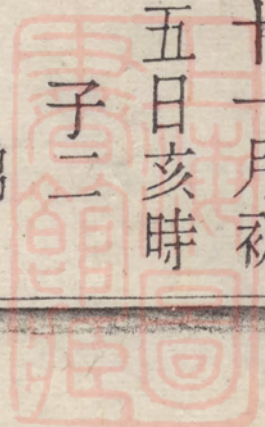 十一月初
五日亥時
子二